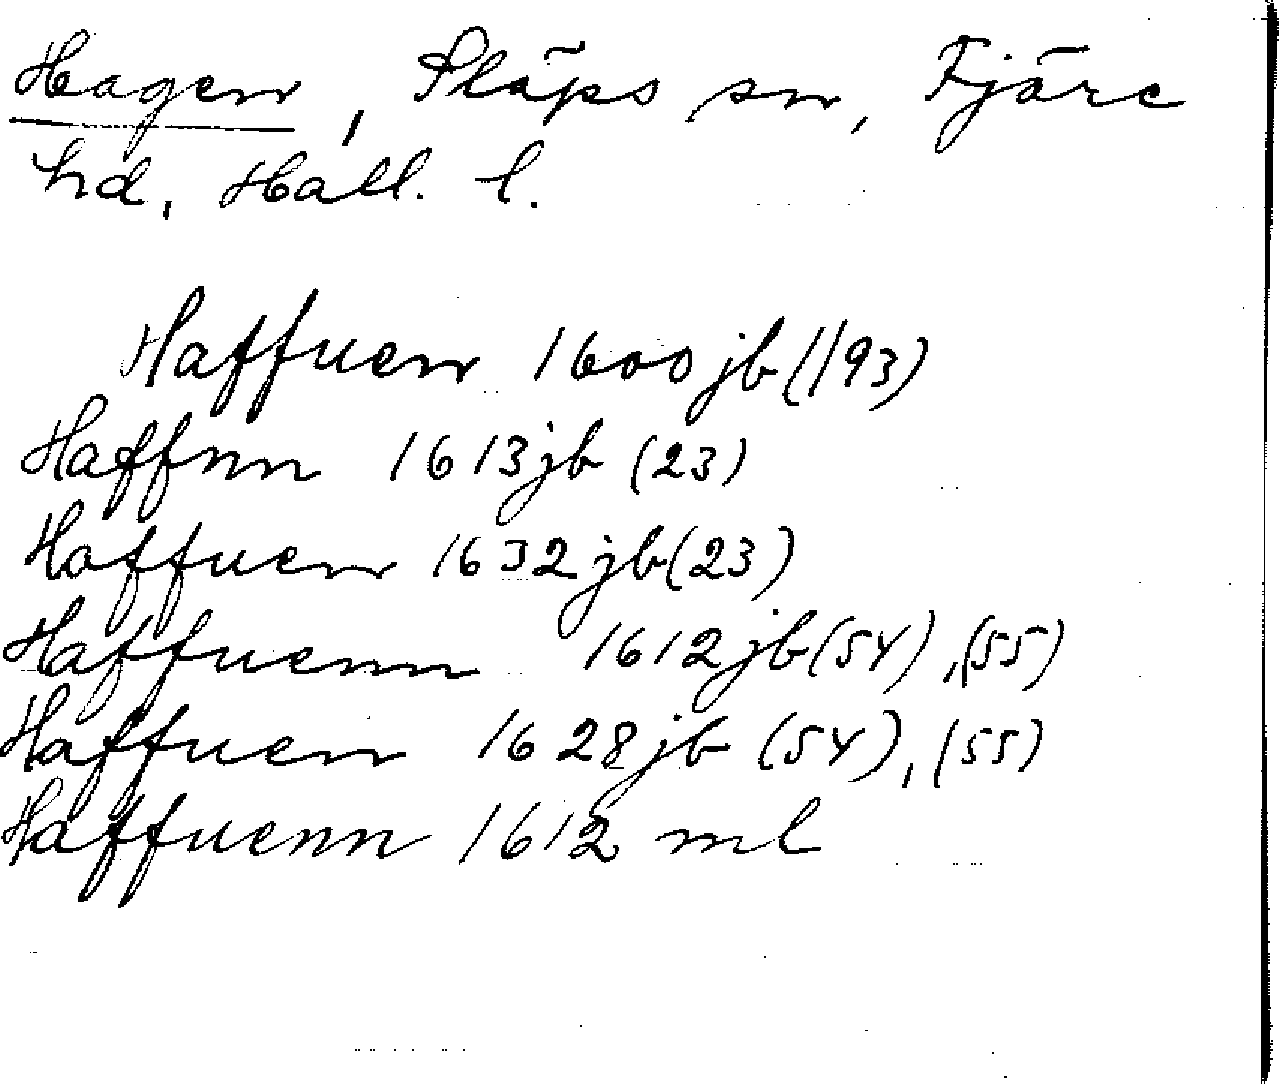 Hagen, Släps sn, Fjäre
hd, Hall. l.
Haffuen 1600 jb (1193)
Haffnn 1613 jb (23)
Haffuen 1632 jb (23)
Haffuenn 1612 jb (54), (55)
Haffuen 1628 jb (54), (55)
Haffuenn 1612 ml